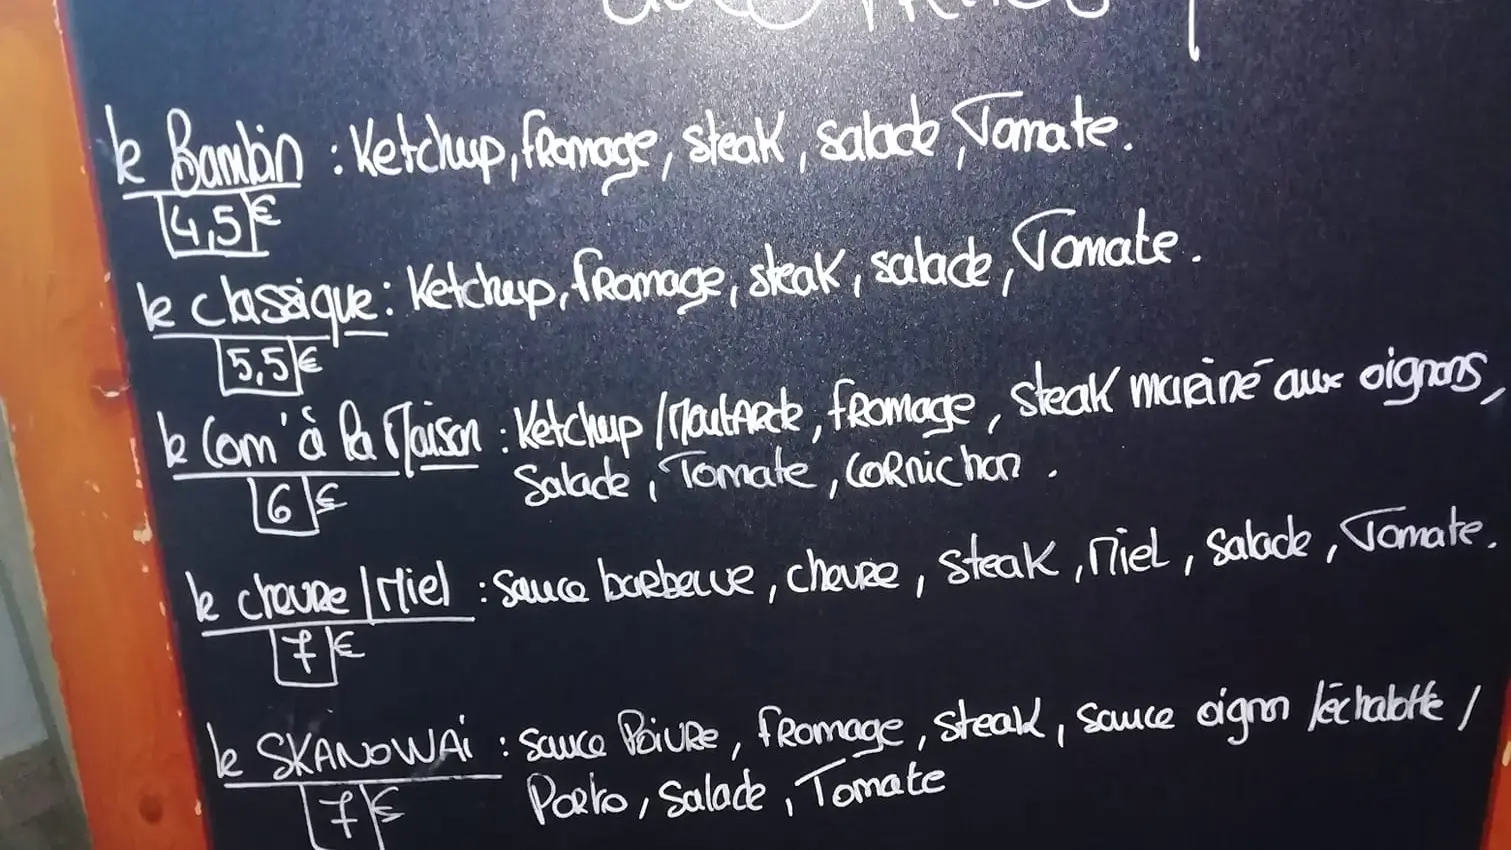 le Bambin : Ketchup, fromage, steak, salade, Tomate.
4,5€
le classique : Ketchup, fromage, steak, salade, Tomate.
5,5€
le Com' à la Maison : Ketchup / Moutarde, fromage, steak mariné aux oignons,
Salade, Tomate, cornichon.
6€
le chevre / Miel : sauce barbecue, chevre, steak, Miel, salade, Tomate.
7€
le SKANOWAi : sauce Poivre, fromage, steak, sauce oignon / échalotte /
Porto, salade, Tomate
7€